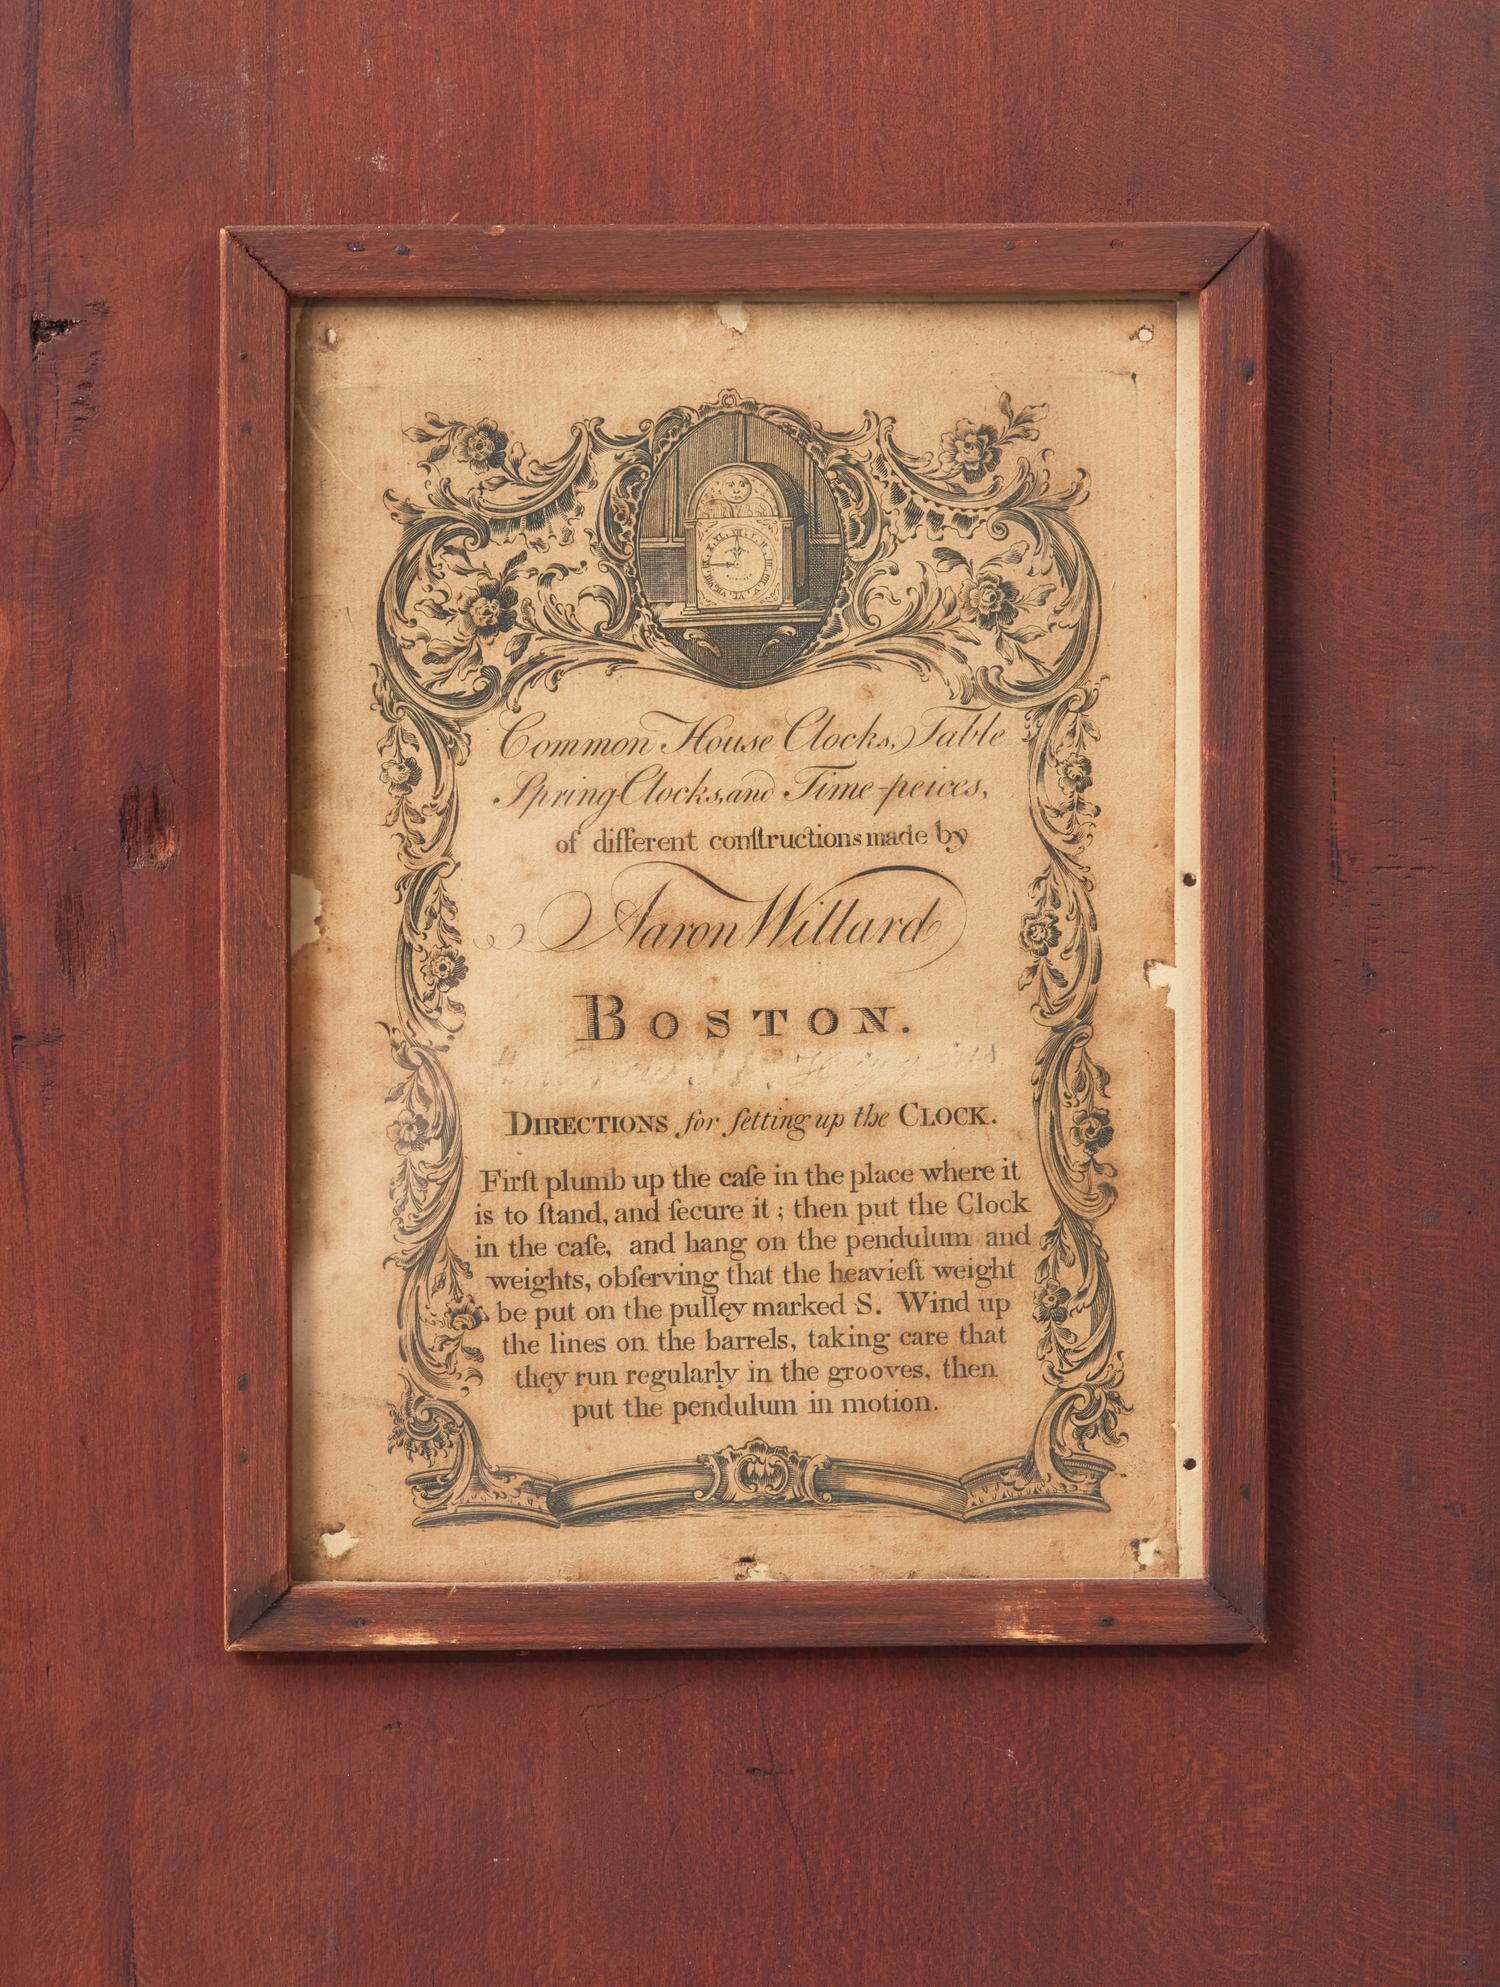 Common House Clocks, Table
Spring Clocks, and Time-peices,
of different conſtructions made by
Aaron Willard
BOSTON.
DIRECTIONS for ſetting up the CLOCK.
Firſt plumb up the caſe in the place where it
is to ſtand, and ſecure it; then put the Clock
in the caſe, and hang on the pendulum and
weights, obſerving that the heavieſt weight
be put on the pulley marked S. Wind up
the lines on the barrels, taking care that
they run regularly in the grooves, then
put the pendulum in motion.